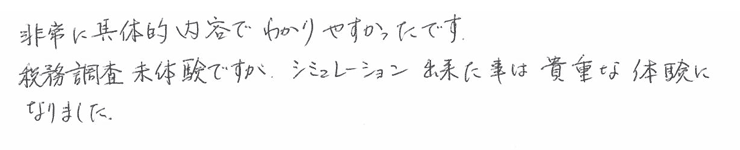 非常に具体的内容でわかりやすかったです.
税務調査未体験ですが、シミュレーション出来た事は貴重な体験に
なりました.